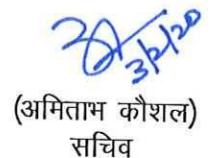 3/2/20
(अमिताभ कौशल)
सचिव